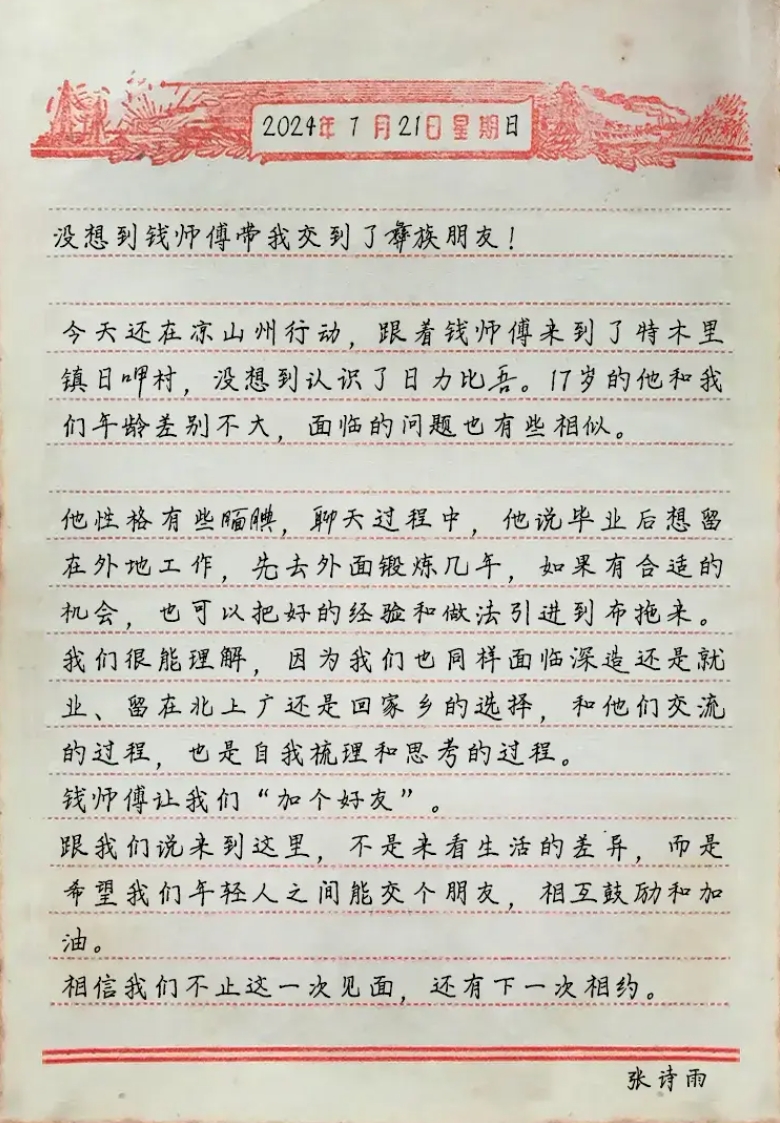 2024年7月21日星期日
没想到钱师傅带我交到了彝族朋友！
今天还在凉山州行动，跟着钱师傅来到了特木里
镇日呷村，没想到认识了日力比吾。17岁的他和我
们年龄差别不大，面临的问题也有些相似。
他性格有些腼腆，聊天过程中，他说毕业后想留
在外地工作，先去外面锻炼几年，如果有合适的
机会，也可以把好的经验和做法引进到布拖来。
我们很能理解，因为我们也同样面临深造还是就
业、留在北上广还是回家乡的选择，和他们交流
的过程，也是自我梳理和思考的过程。
钱师傅让我们“加个好友”。
跟我们说来到这里，不是来看生活的差异，而是
希望我们年轻人之间能交个朋友，相互鼓励和加
油。
相信我们不止这一次见面，还有下一次相约。
张诗雨